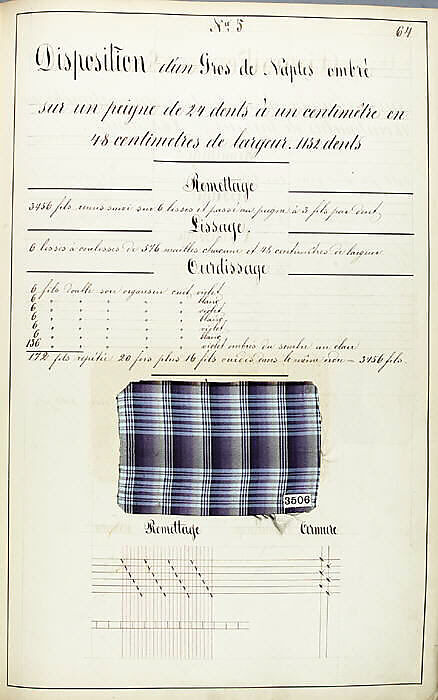 Nº 5
64
Disposition d'un Gros de Naples ombré
sur un peigne de 24 dents à un centimètre en
48 centimètres de largeur. 1152 dents
Remettage
3456 fils remis suivi sur 6 lisses et passé au peigne à 3 fils par dent
Lissage.
6 lisses à coulisses de 576 mailles chacune et 48 centimètres de largeur
Ourdissage
6 fils double soie organsin cuit, violet
6 " " " " " blanc
6 " " " " " violet
6 " " " " " blanc
6 " " " " " violet
6 " " " " " blanc
136 " " " " " violet ombrés du sombre au clair
172 fils répétés 20 fois plus 16 fils ourdis dans le même — 3456 fils.
3506
Remettage
Armure